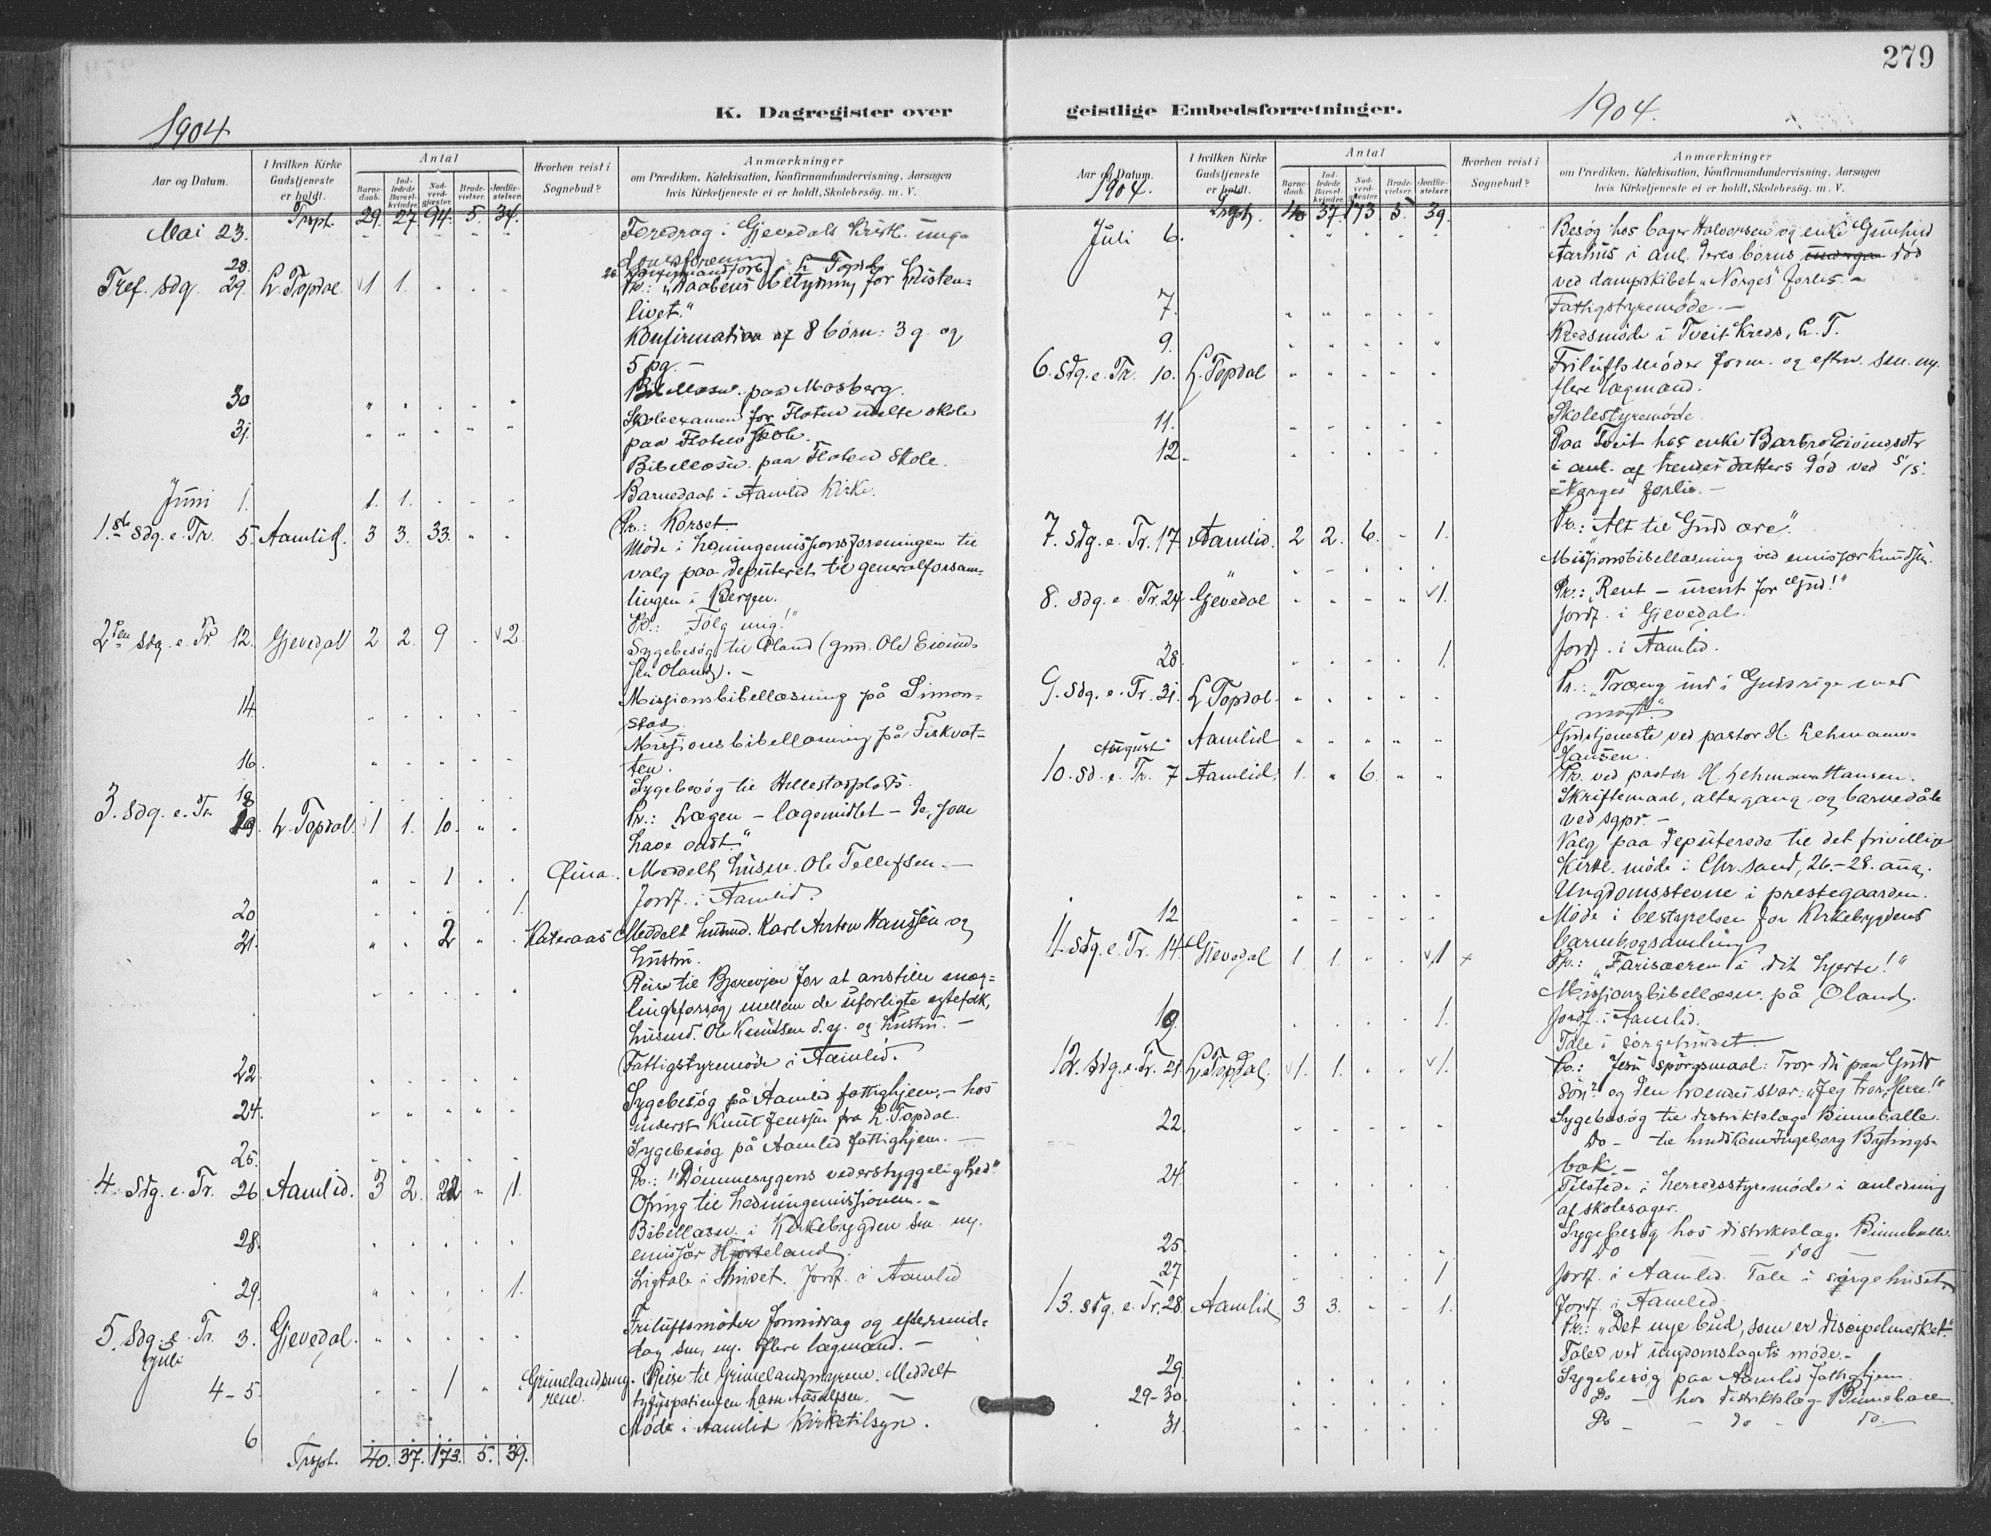 279
K. Dagregister over
geistlige Embedsforretninger.
1904
1904.
Aar og Datum.
I hvilken Kirke Gudstjeneste er holdt.
Antal
Barne-daab.
Ind-ledede Barsel-kvinder.
Nad-verd-gjæster.
Brude-vielser.
Jordfæ-stelser.
Hvorhen reist i Sognebud?
Anmærkninger
om Prædiken, Katekisation, Konfirmandundervisning, Aarsagen
hvis Kirketjeneste ei er holdt, Skolebesøg, m. V.
Trspt. 29. 27. 94. 5. 34.
Mai 23. Foredrag i Gjevedals kristl. ung-
domsforening
28.
Tref. sdg. 29. H. Topdal 1 1. Pr.: "Daabens betydning for kristen-
livet."
Konfirmation af 8 børn: 3 g. og
5 pg. —
30 Bibellæsn. paa Mosberg.
31. Skoleexamen for Flaten melte skole
paa Flaten skole.
Bibellæsn. paa Flaten skole.
Juni 1. 1. 1. Barnedaab i Aamlid kirke.
1.ste sdg. e. Tr. 5. Aamlid. 3 3. 33. Pr.: Korset.
Møde i hedningemissionsforeningen til
valg paa deputeret til generalforsam-
lingen i Bergen.
2den sdg. e. Tr. 12. Gjevedal 2 2. 9 2. Pr.: "Følg mig!"
Sygebesøg til Øland (gmd. Ole Eivind-
sen Øland). —
14. Missionsbibellæsning på Simon-
stad.
16. Missionsbibellæsning på Fiskvat-
ten.
18 Sygebesøg til Hillestadplads.
3. sdg. e. Tr. 19. H. Topdal. 1 1. 10. Pr.: Lægen — lægemidlet — de, som
have ondt."
1 Meddelt husm. Ole Tellefsen. —
20 1. Jordf. i Aamlid.
21. 2 Kateraas Meddelt husmd. Karl Anton Hanssen og
hustru.
Reise til for at anstille mæg-
lingsforsøg mellem de uforligte egtefolk,
husmd. Ole Knudsen d. y. og hustru. —
22. Fattigstyremøde i Aamlid.
24. Sygebesøg på Aamlid fattighjem. — hos
inderst Knut Jenssen fra H. Topdal.
25. Sygebesøg på Aamlid fattighjem. —
4. sdg. e. Tr. 26 Aamlid. 3 2. 22 1. Pr.: "Dømmesygens vederstyggelighed."
Ofring til hedningemissionen. —
28. Bibellæsn. i Kirkebygden sm. m.
emissær Hjorteland.
29. 1. Ligtale i huset. Jordf. i Aamlid
5. sdg. e. Tr. 3. Gjevedal. Friluftsmøder formidag og eftermid-
Juli
dag sm. m. flere lægmænd. —
4-5. 1 Grimelandsmy-rene. Reise til Grimelandsmyrene. Meddelt
tyfuspatienten
6 Møde i Aamlid kirketilsyn.
Trspt. 40. 37. 173. 5. 39.
Aar og Datum.
1904.
I hvilken Kirke Gudstjeneste er holdt.
Antal
Barne-daab.
Ind-ledede Barsel-kvinder.
Nad-verd-gjæster.
Brude-vielser.
Jordfæ-stelser.
Hvorhen reist i Sognebud?
Anmærkninger
om Prædiken, Katekisation, Konfirmandundervisning, Aarsagen
hvis Kirketjeneste ei er holdt, Skolebesøg, m. V.
Trspt. 40 37. 173 5. 39.
Juli 6. Besøg hos bager Halvorsen og enke Gunhild
Aarhus i anl. deres børns død
ved dampskibet "Norges" forlis. —
7. Fattigstyremøde. —
9. Kredsmøde i Tveit kreds, H. T.
6. sdg. e. Tr. 10. H. Topdal Friluftsmøder form. og efterm. sm. m.
flere lægmænd.
11. Skolestyremøde.
12. Paa Tveit hos enke Barbro Eivindsdtr
i anl. af hendes datters død ved s/s.
"Norges" forlis. —
7. sdg. e. Tr. 17 Aamlid. 2 2. 6. 1. Pr.: "Alt til Guds ære".
Missionsbibellæsning ved emissær Knudsen.
8. sdg. e. Tr. 24 Gjevedal 1. Pr.: "Rent — urent for Gud!"
Jordf. i Gjevedal.
28. 1. Jordf. i Aamlid.
9. sdg. e. Tr. 31. H. Topdal. Pr.: "Træng ind i Guds rige med
magt."
Aamlid Gudstjeneste ved pastor H. Lehmann-
Hansen.
August
10. sd. e. Tr. 7 Aamlid. 1. 6. Pr. ved pastor H. Lehmann Hansen.
Skriftemaal, altergang og barnedåb
ved sgpr. —
Valg paa deputerede til det frivillige
kirkl. møde i Chr.sand, 26.-28. aug.
Ungdomsstevne i prestegaarden.
12 Møde i bestyrelsen for Kirkebygdens
barnebogsamling
11. sdg. e. Tr. 14. Gjevedal 1. 1. 1 Pr.: "Farisæeren i dit hjerte!"
Missionsbibellæsn. på Øland.
19 1. Jordf. i Aamlid.
Tale i sørgehuset.
12. sdg. e. Tr. 21. H. Topdal. 1. 1. 1. Pr.: Jesu spørgsmaal: Tror du paa Guds
Søn? og den troendes svar: "Jeg tror, Herre!"
22. Sygebesøg til distriktslæge Binneballe.
Do — til Ingeborg Bytings-
bak. —
24. Tilstede i herredsstyremøde i anledning
af skolesager.
25. Sygebesøg hos distriktslæge Binneballe.
Do do
27 1 Jordf. i Aamlid. Tale i sørgehuset.
13. sdg. e. Tr. 28. Aamlid 3 3. 1. Jordf. i Aamlid.
Pr.: "Det nye bud, som er discipelmerket."
Taled ved ungdomslagets møde. —
29. Sygebesøg paa Aamlid fattighjem.
29-30. Do — hos distriktslæge Binneballe.
31. Do — do — do —